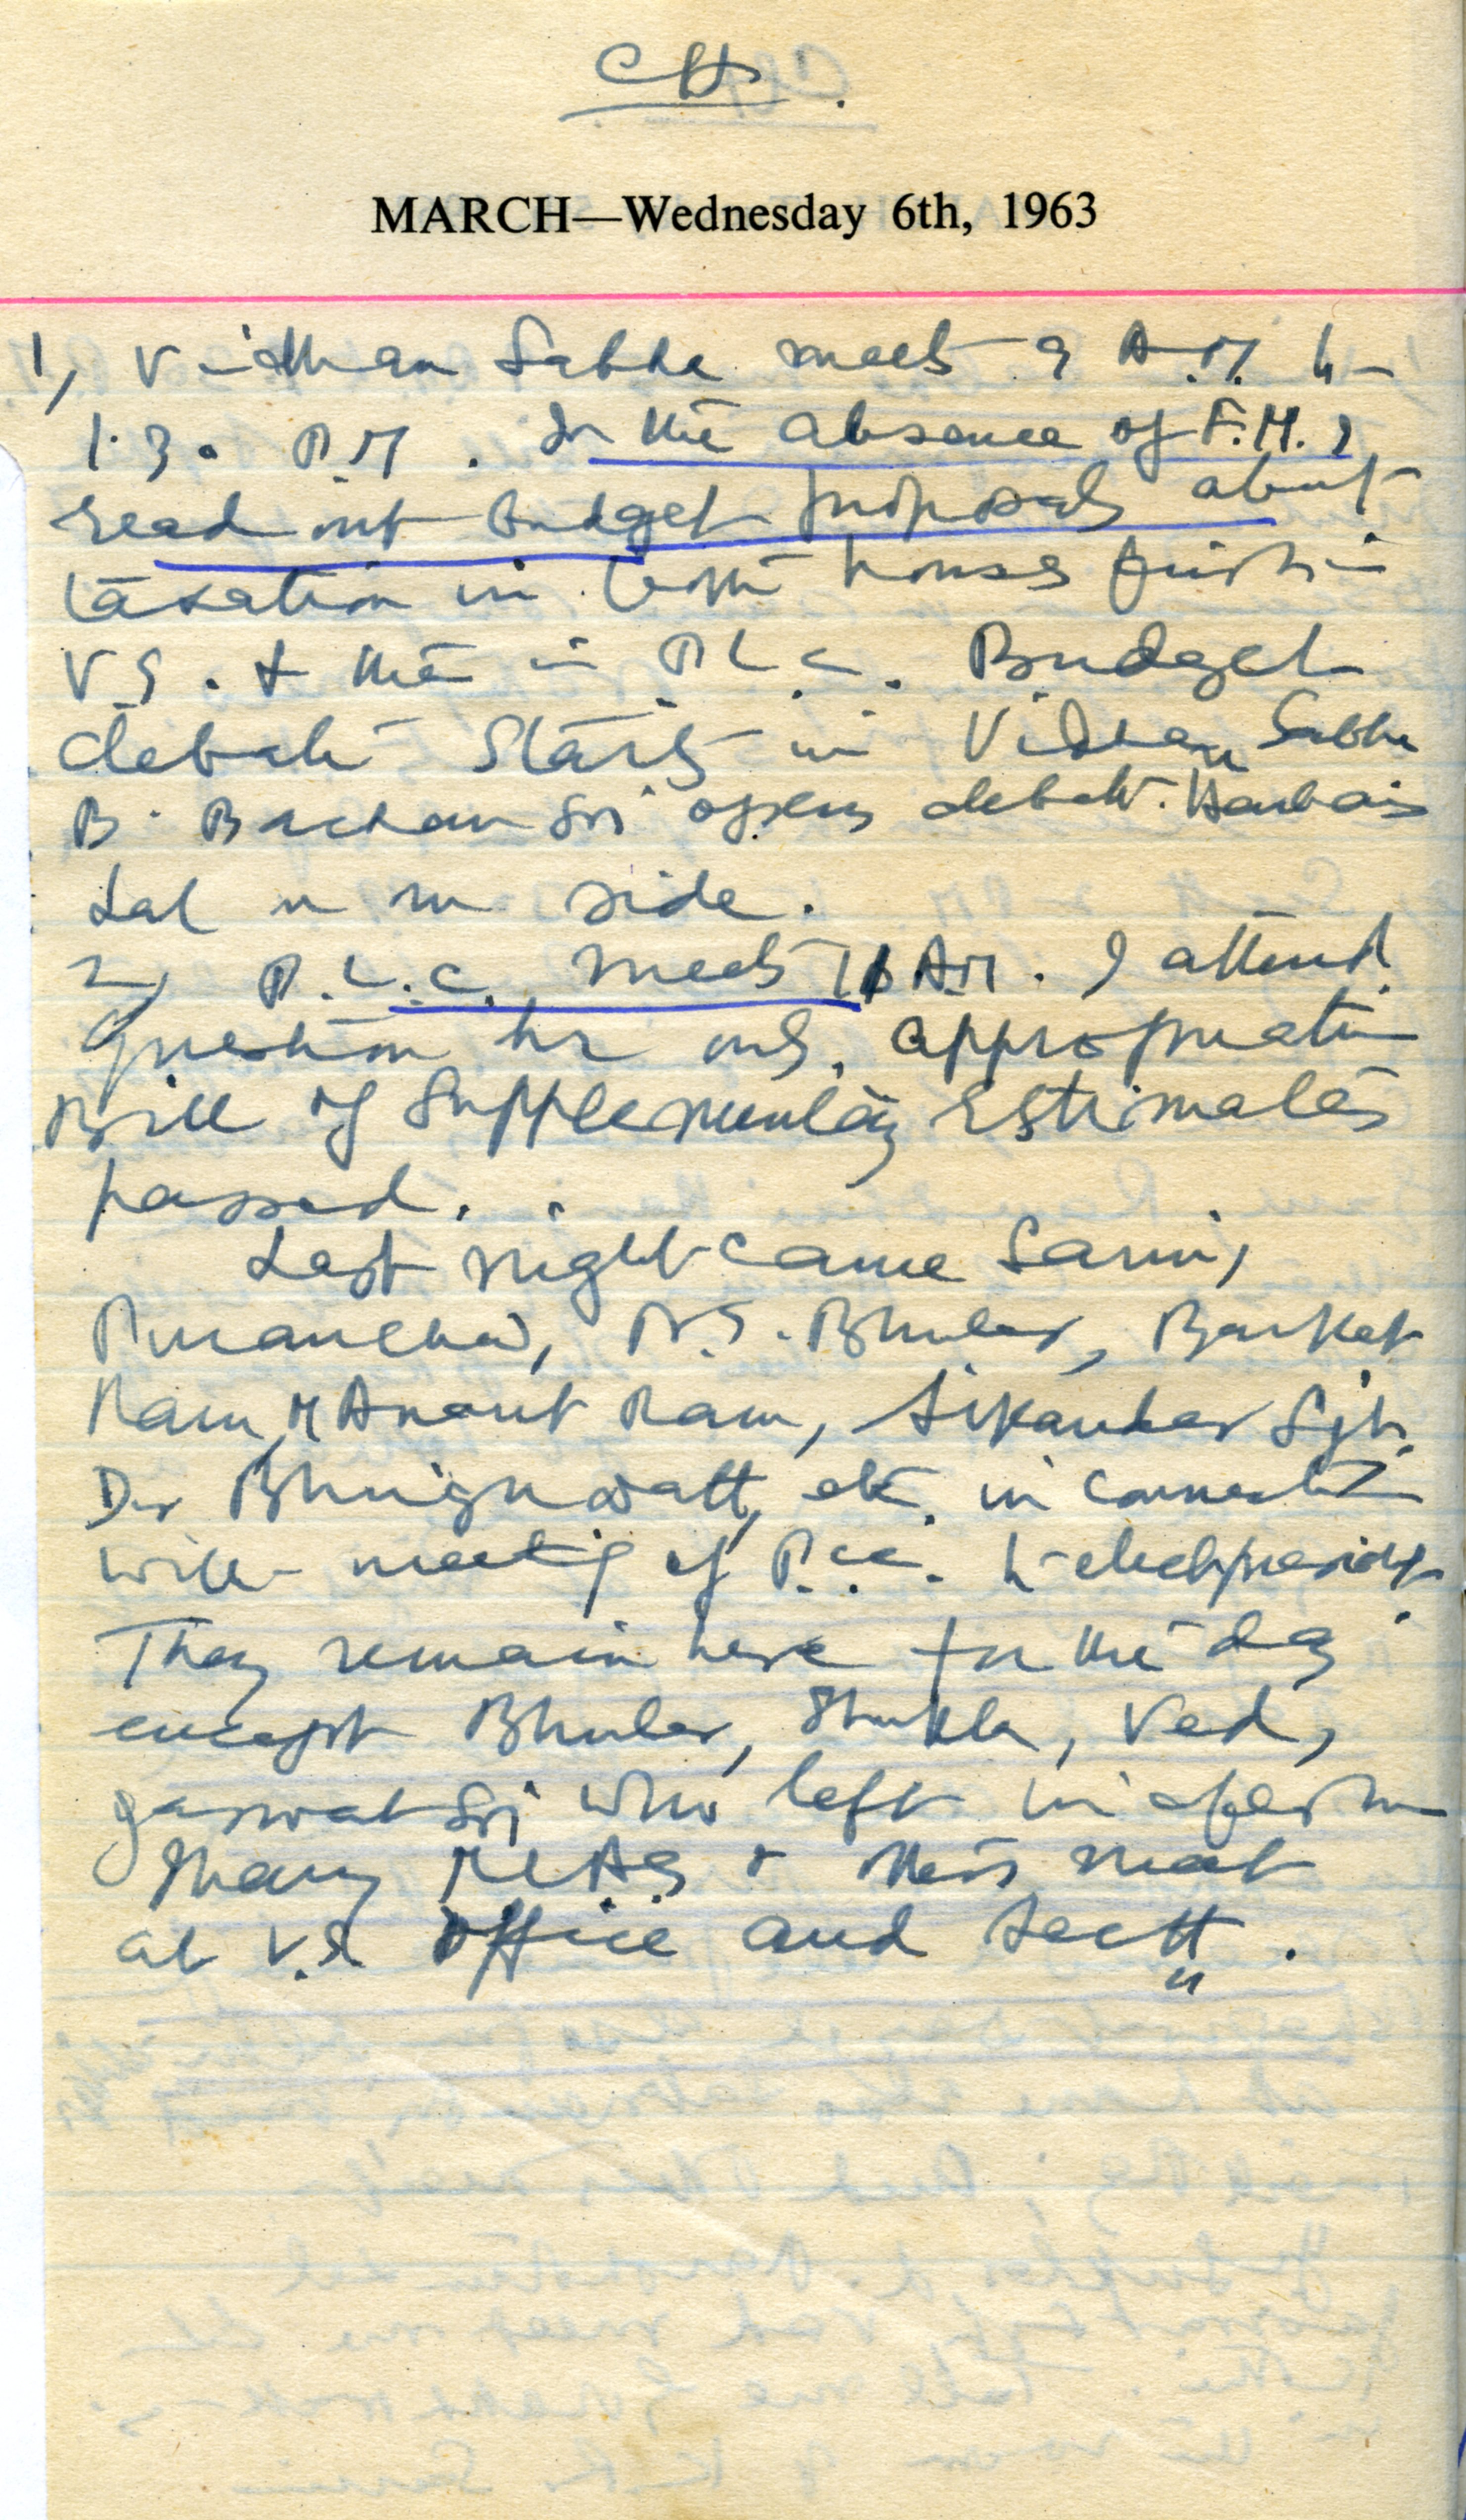 CH.
MARCH—Wednesday 6th, 1963
1, Vidhan Sabha meets 9 A.M. to
1.30 P.M. In the absence of F.M. I
read out Budget proposals about
taxation in both houses first in
V.S. & then in P.L.C. Budget
debate starts in Vidhan Sabha
B. Bachan Sgh opens debate. Harbans
Lal on our side.
2, P.L.C. meets 11 A.M. I attend
question hr only. Appropriation
Bill of Supplementary Estimates
passed.
Last night came Sarin,
Puranchand, P.S. Bhuler, Barket
Ram, M Anant Ram, Sikander Sgh.
Dev etc. in connection
with meeting of P.C.C. to elect president.
They remain here for the day
except Bhuler, Shukla, Ved,
Jaswat Sgh who left in afternoon
Many MLAs & others meet
at V.S. office and Sectt.